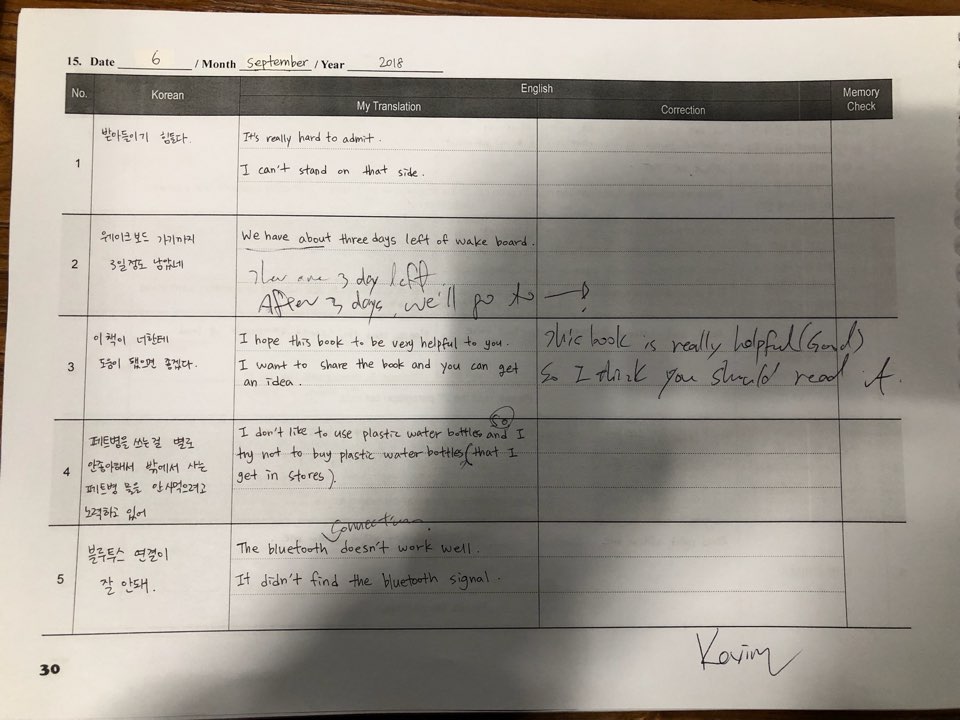 15. Date 6 / Month September / Year 2018
No. Korean English Memory Check
My Translation Correction
1
받아들이기 힘들다.
It's really hard to admit.
I can't stand on that side.
2
웨이크보드 가기까지
3일정도 남았네
We have about three days left of wake board.
3 day left
After 3 days, we'll go to
3
이 책이 너한테
도움이 됐으면 좋겠다.
I hope this book to be very helpful to you.
I want to share the book and you can get
an idea.
This book is really helpful (Good)
So I think you should read it.
4
페트병을 쓰는걸 별로
안좋아해서 밖에서 사는
페트병 물을 안사먹으려고
노력하고 있어
So
I don't like to use plastic water bottles and I
try not to buy plastic water bottles (that I
get in stores).
5
블루투스 연결이
잘 안돼.
Connection
The bluetooth doesn't work well.
It didn't find the bluetooth signal.
30